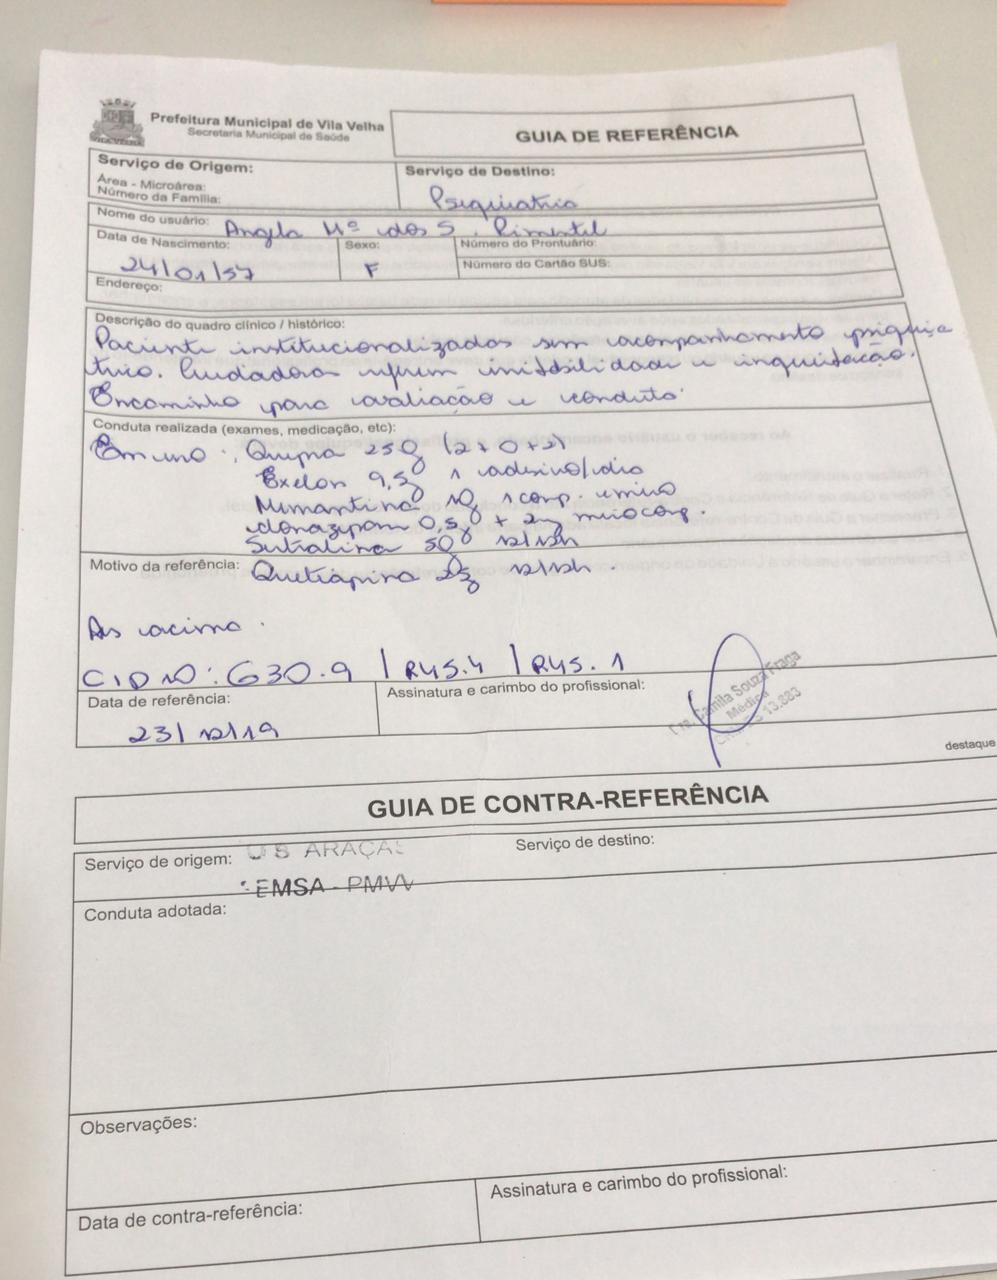 Prefeitura Municipal de Vila Velha
Secretaria Municipal de Saúde
GUIA DE REFERÊNCIA
Serviço de Origem:
Área - Microárea:
Número da Família:
Serviço de Destino:
Psiquiatria
Nome do usuário: Angela Mª dos S. Pimentel
Data de Nascimento:
24/01/57
Sexo:
F
Número do Prontuário:
Número do Cartão SUS:
Endereço:
Descrição do quadro clínico / histórico:
Paciente institucionalizada sem acompanhamento psiquiá
trico. Cuidadora referem irritabilidade e inquietação.
Encaminho para avaliação e conduta.
Conduta realizada (exames, medicação, etc):
Em uso: 25 (2+0+2)
Exelon 9,5 1 adesivo/dia
Memantina 10 1 comp.
clonazepam 0,5 + 2
Sertralina 50 12/12h
Quetiapina 25 12/12h.
Motivo da referência:
As acima.
CID 10: G30.9 / R45.4 / R45.1
Data de referência:
23/12/19
Assinatura e carimbo do profissional:
Camila Souza Fraga
Médica
13.883
destaque
GUIA DE CONTRA-REFERÊNCIA
Serviço de origem: US ARAÇAS
SEMSA - PMVV
Serviço de destino:
Conduta adotada:
Observações:
Data de contra-referência:
Assinatura e carimbo do profissional: